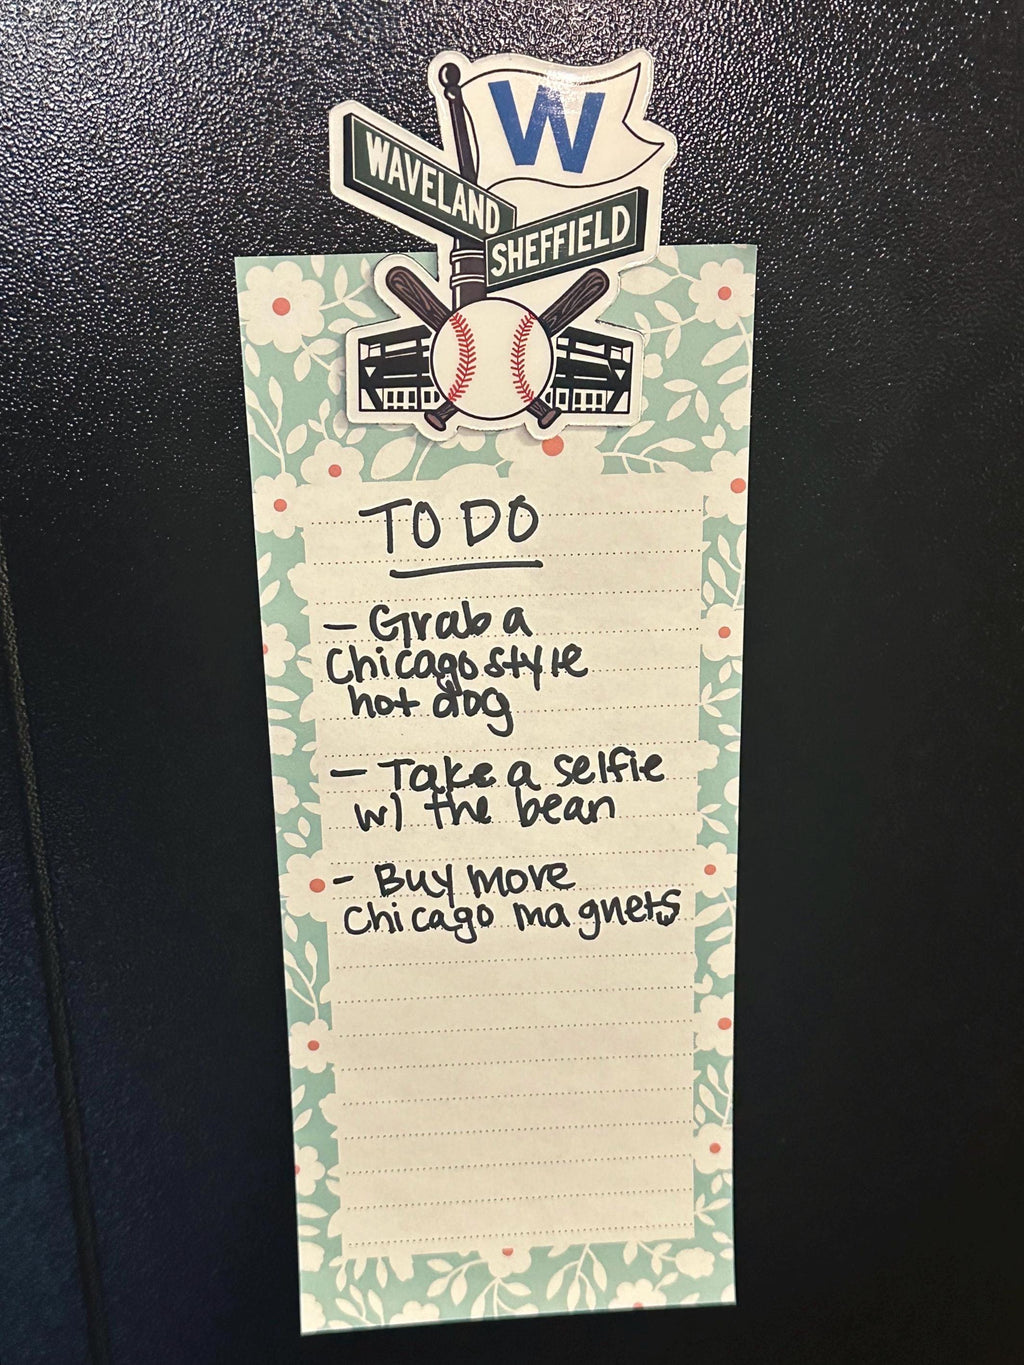 W
WAVELAND
SHEFFIELD
TO DO
- Grab a
Chicago style
hot dog
- Take a selfie
w/ the bean
- Buy more
Chicago magnets